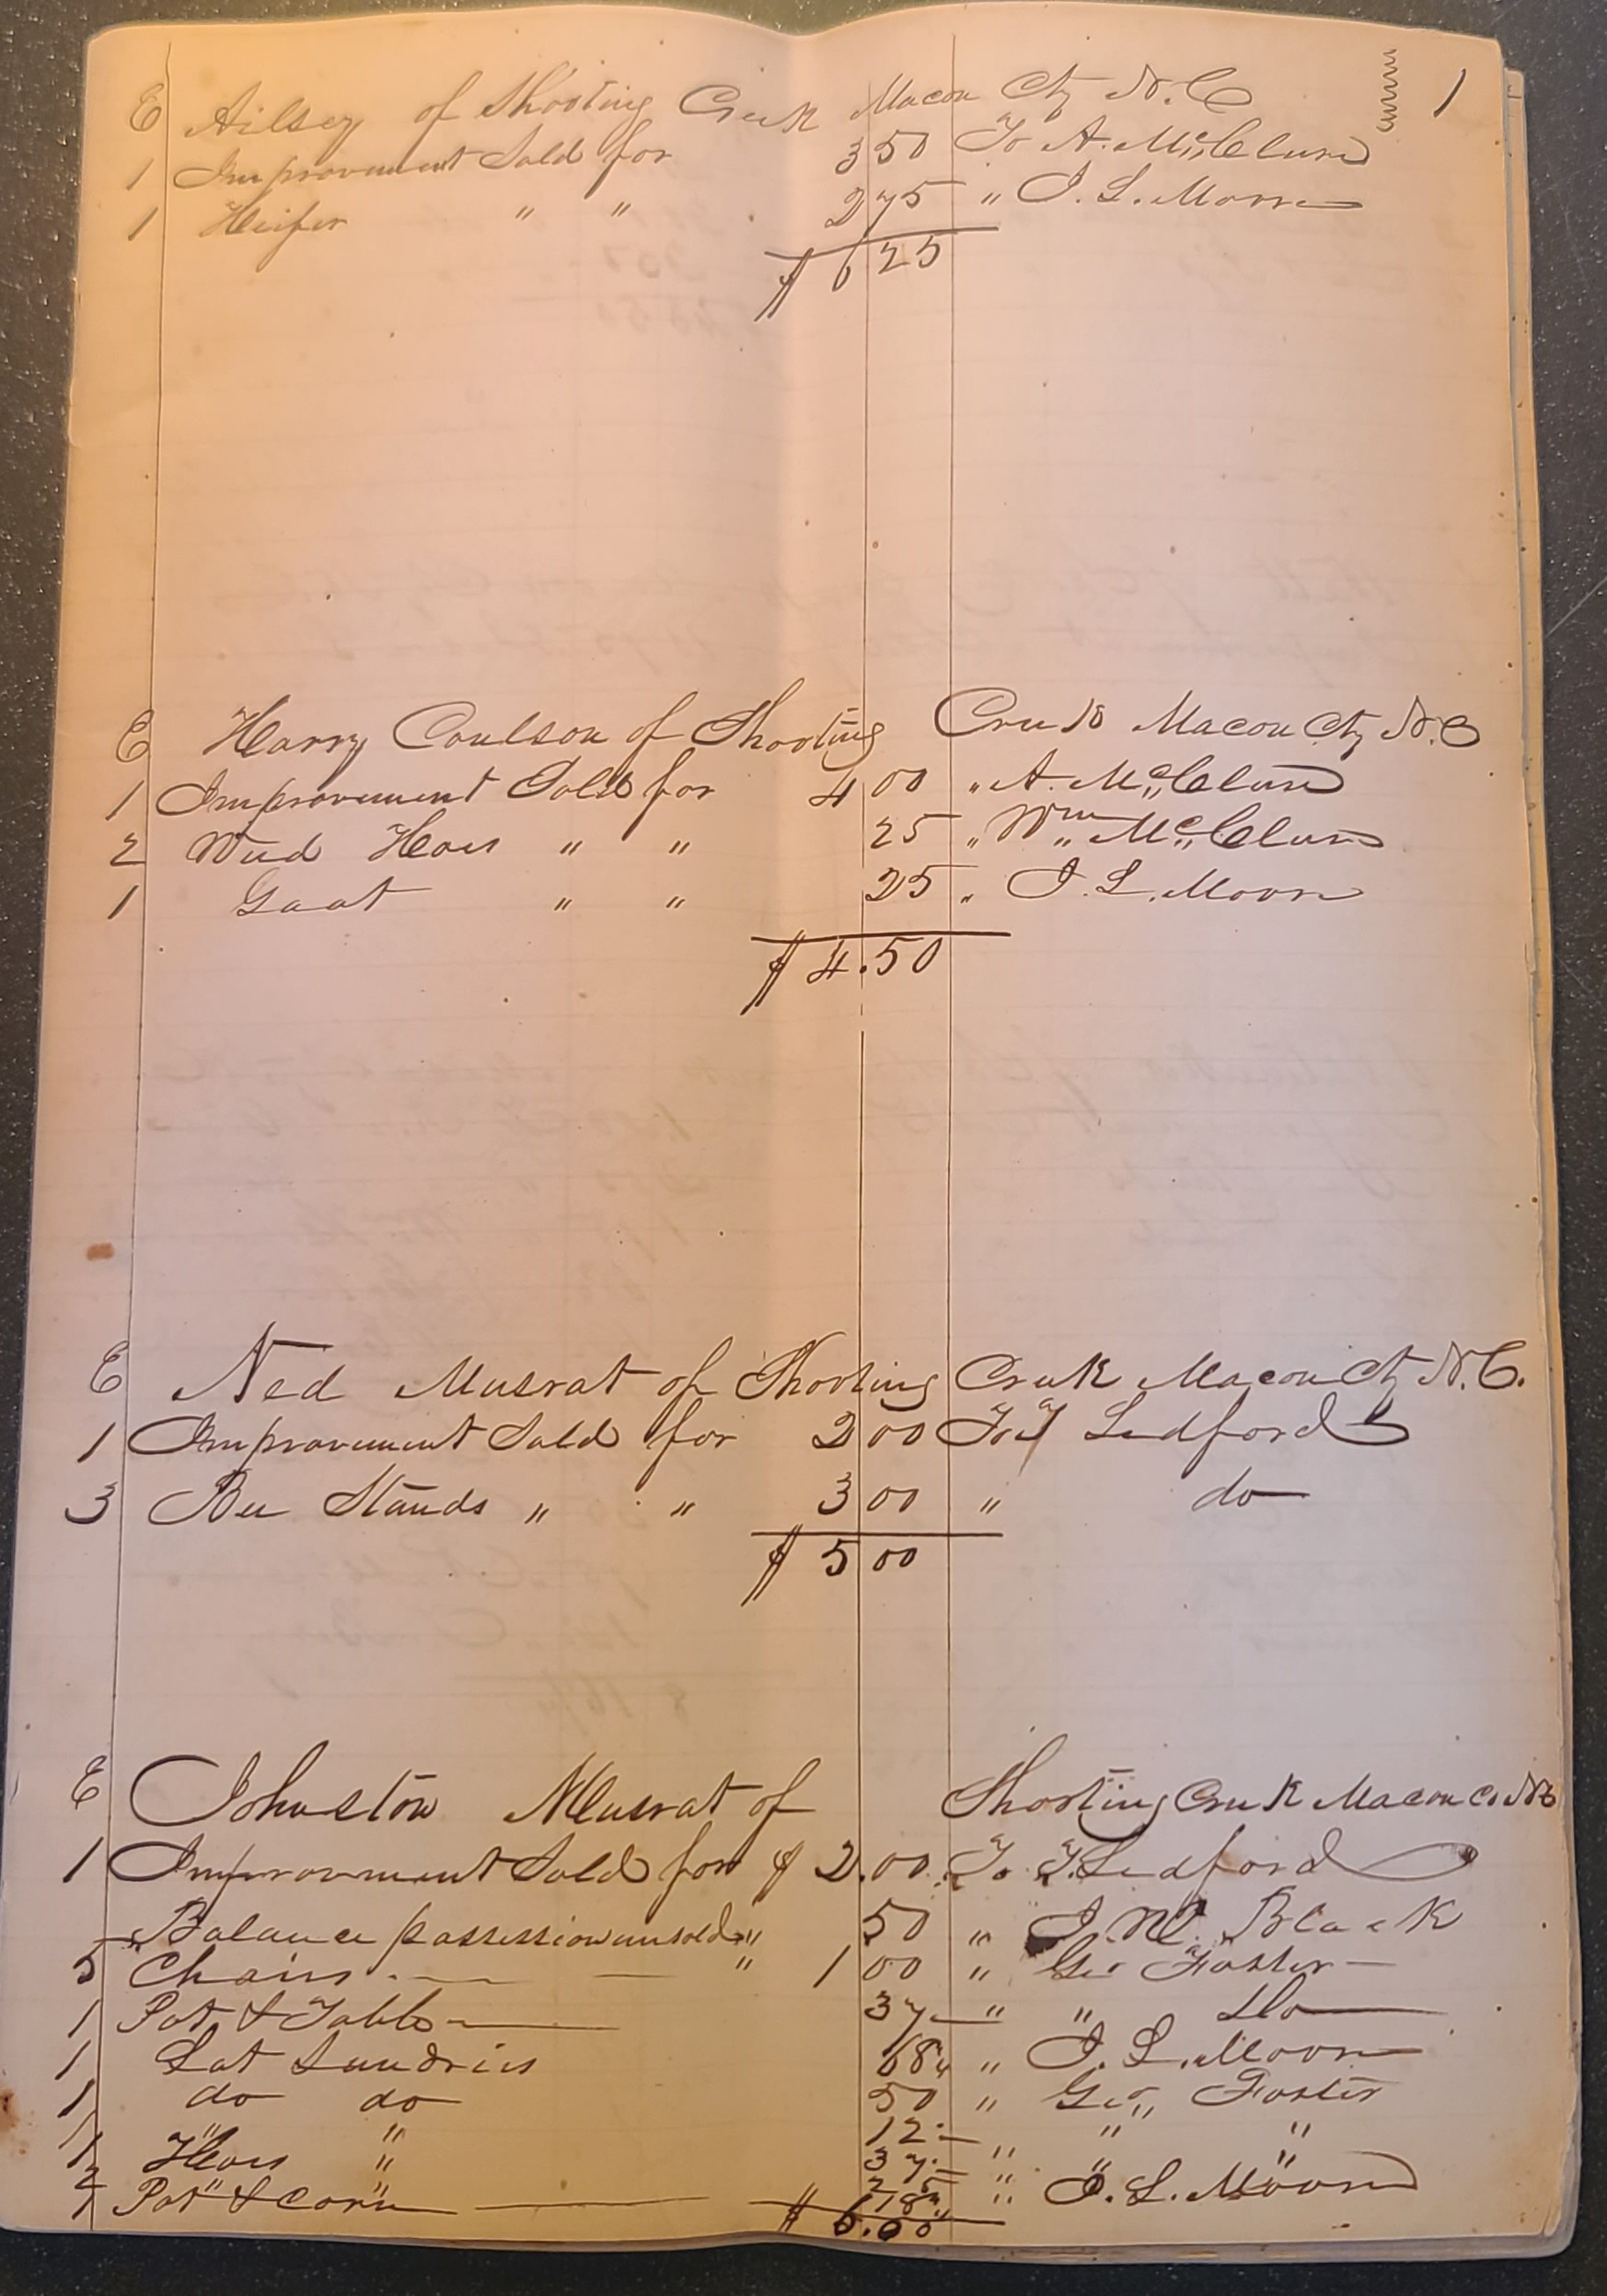 1
E Ailsey of Shooting Creek Macon Cty N. C
1 Improvement Sold for 3 50 To A. Mc,,Clure
1 Heifer " " 2 75 " J. L. Moore
$ 6 25
E Harry Coulson of Shooting Creek Macon Cty N. C
1 Improvement Sold for 4 00 " A. Mc,,Clure
2 Weed Hoes " " 25 " Wm,, Mc,,Clure
1 Goat " " 25 " J. L. Moore
$ 4.50
E Ned Musrat of Shooting Creek Macon Cty N. C.
1 Improvement Sold for 2 00 To J Ledford
3 Bee Stands " " 3 00 " do
$ 5 00
E Johnston Musrat of Shooting Creek Macon Co NC
1 Improvment Sold for $ 2.00. To J. Ledford
Balance possession unsold " 50 " J. W. Black
5 Chairs " 1 00 " Geo Foster
1 Pot & Table 37 " " Do
1 Lot Sundries 68 " J. L. Moore
1 do do 50 " Geo,, Foster
1 " " 12 " " "
1 " " 37 " " "
2 Hoes 25 "
1 Pot & Corn 18 " J. L. Moore
$ 6.00